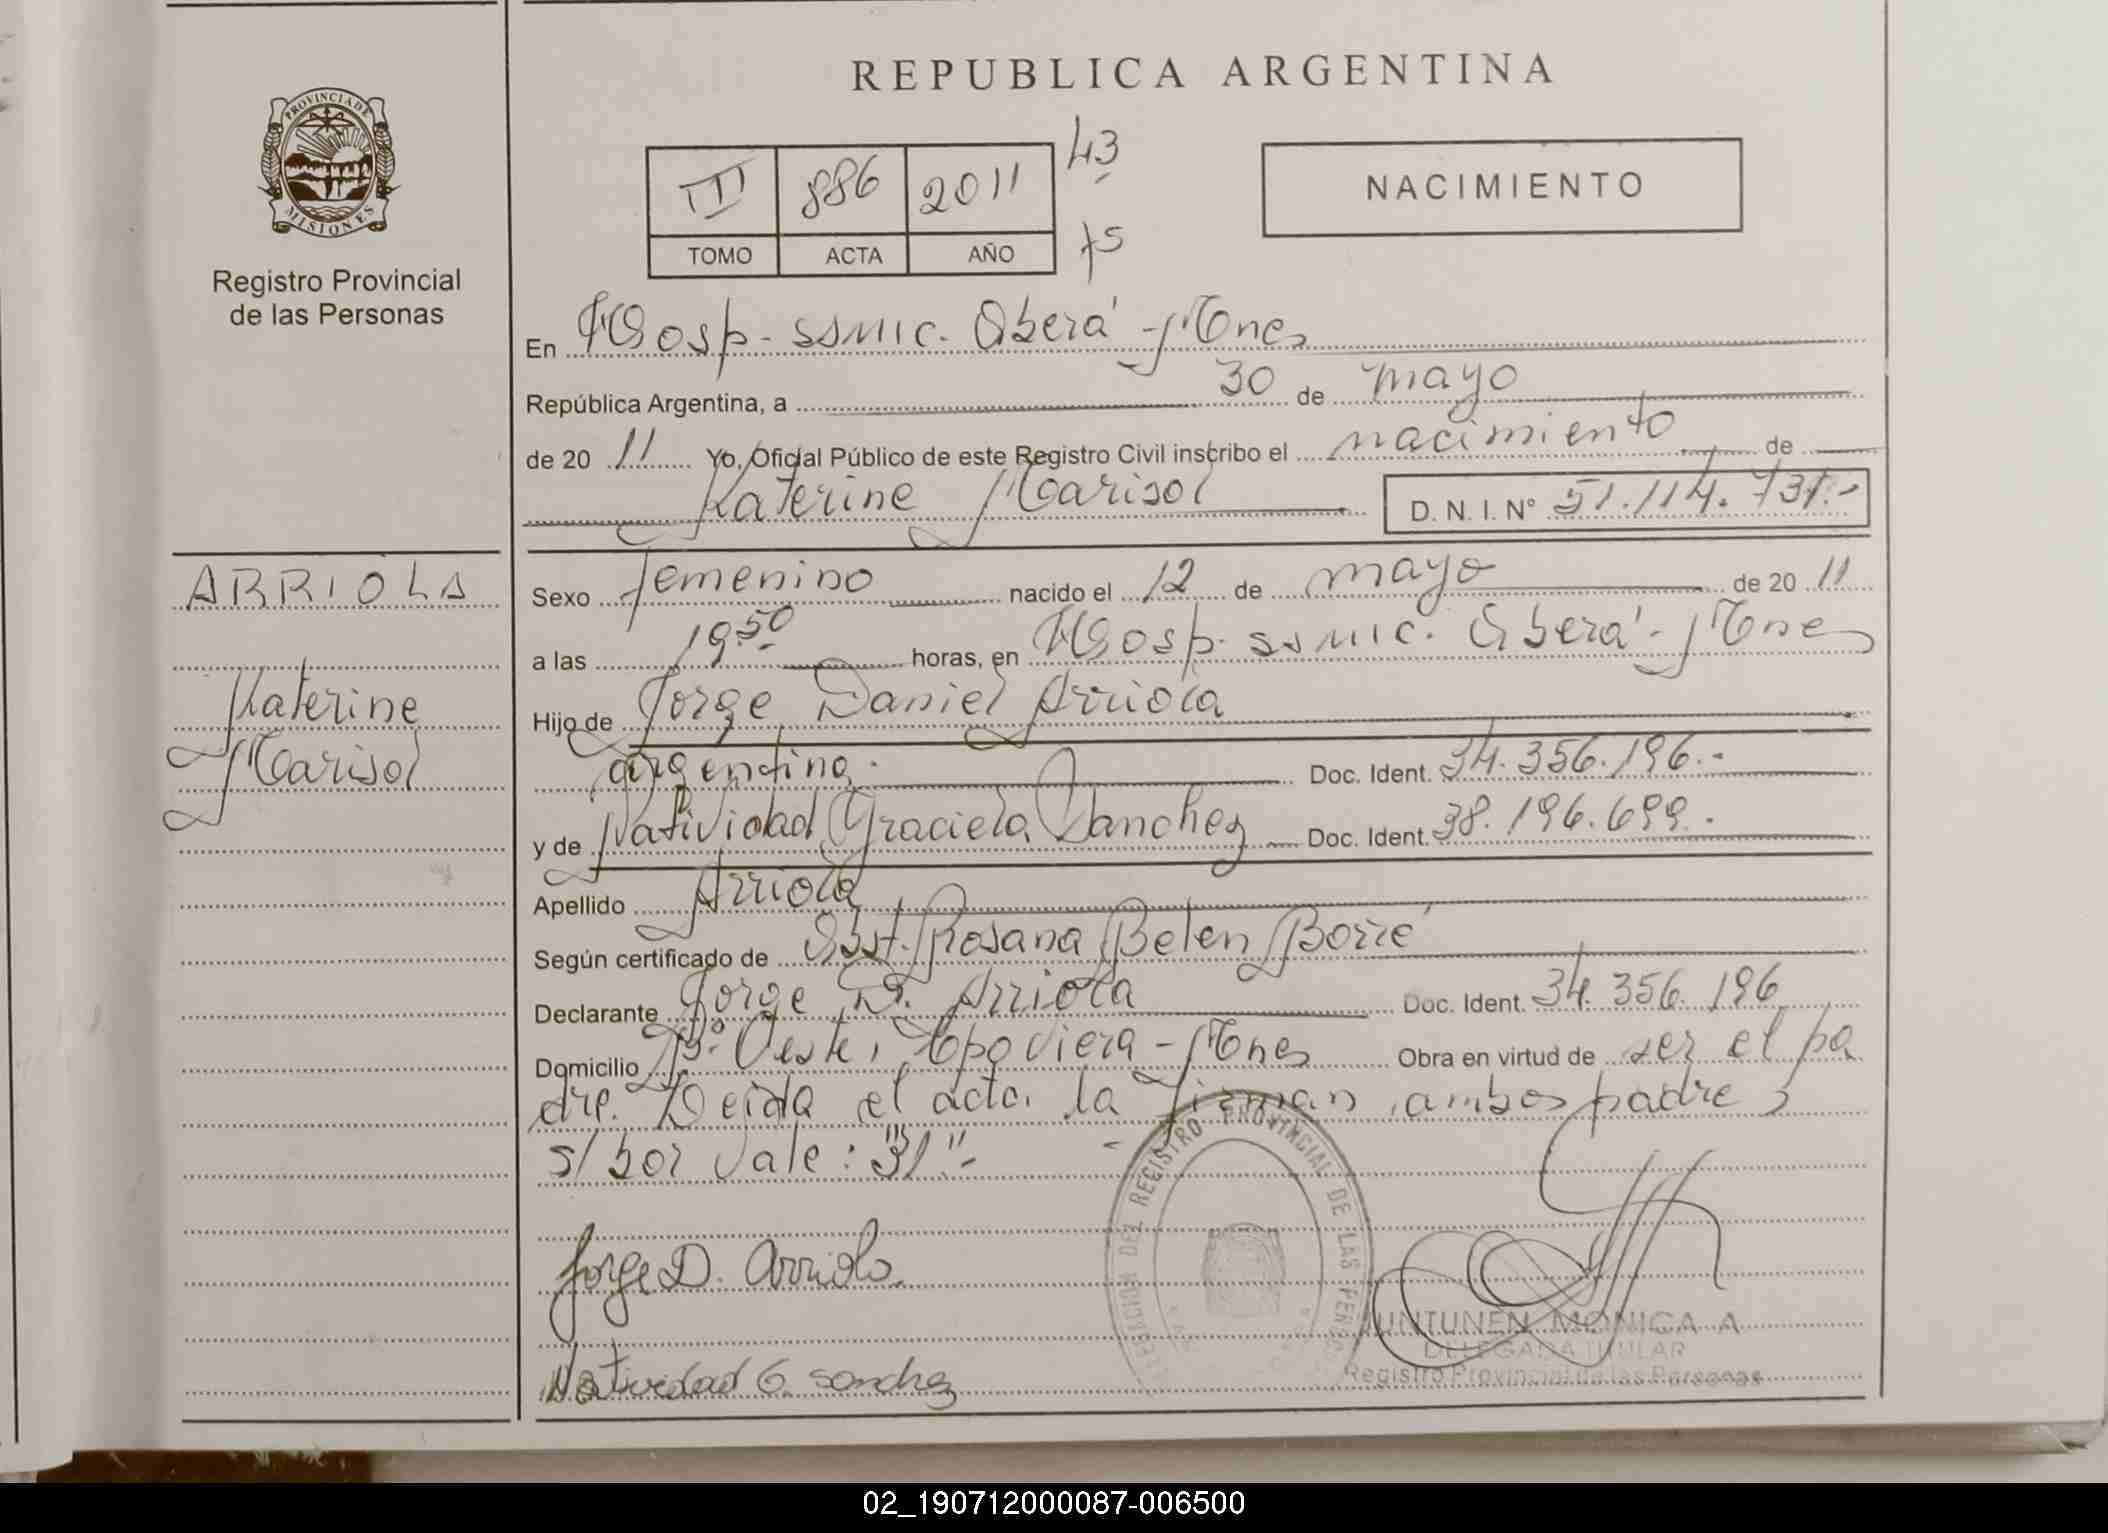 REPUBLICA ARGENTINA
PROVINCIA DE
MISIONES
Registro Provincial
de las Personas
III 886 2011 43
TOMO ACTA AÑO 75
NACIMIENTO
En Hosp. ssmic. Oberá - Mnes
República Argentina, a 30 de mayo
de 20 11 Yo, Oficial Público de este Registro Civil inscribo el nacimiento de
Katerine Marisol D. N. I. Nº 51.114.731.-
ARRIOLA
Katerine
Marisol
Sexo femenino nacido el 12 de mayo de 20 11
a las 19 50 horas, en Hosp. ssmic. Oberá - Mnes
Hijo de Jorge Daniel Arriola
argentino. Doc. Ident. 34.356.196.-
y de Natividad Graciela Sanchez Doc. Ident. 38.196.699.-
Apellido Arriola
Según certificado de Obst. Rosana Belen Borré
Declarante Jorge D. Arriola Doc. Ident. 34.356.196
Domicilio Bº Oeste, Apoviera - Mnes Obra en virtud de ser el pa
dre. Leida el acta la firman ambos padres
s/bor vale: "31"-
Jorge D. Arriola
Natividad G. Sanchez
DELEGACION DEL REGISTRO PROVINCIAL DE LAS PERSONAS
JUNTUNEN MONICA A
DELEGADA TITULAR
Registro Provincial de las Personas
02_190712000087-006500